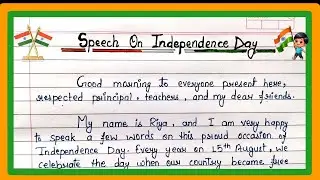 Speech On Independence Day
Good morning to everyone present here,
respected principal, teachers, and my dear friends.
My name is Riya, and I am very happy
to speak a few words on this proud occasion of
Independence Day. Every year on 15th August, we
celebrate the day when our country became free